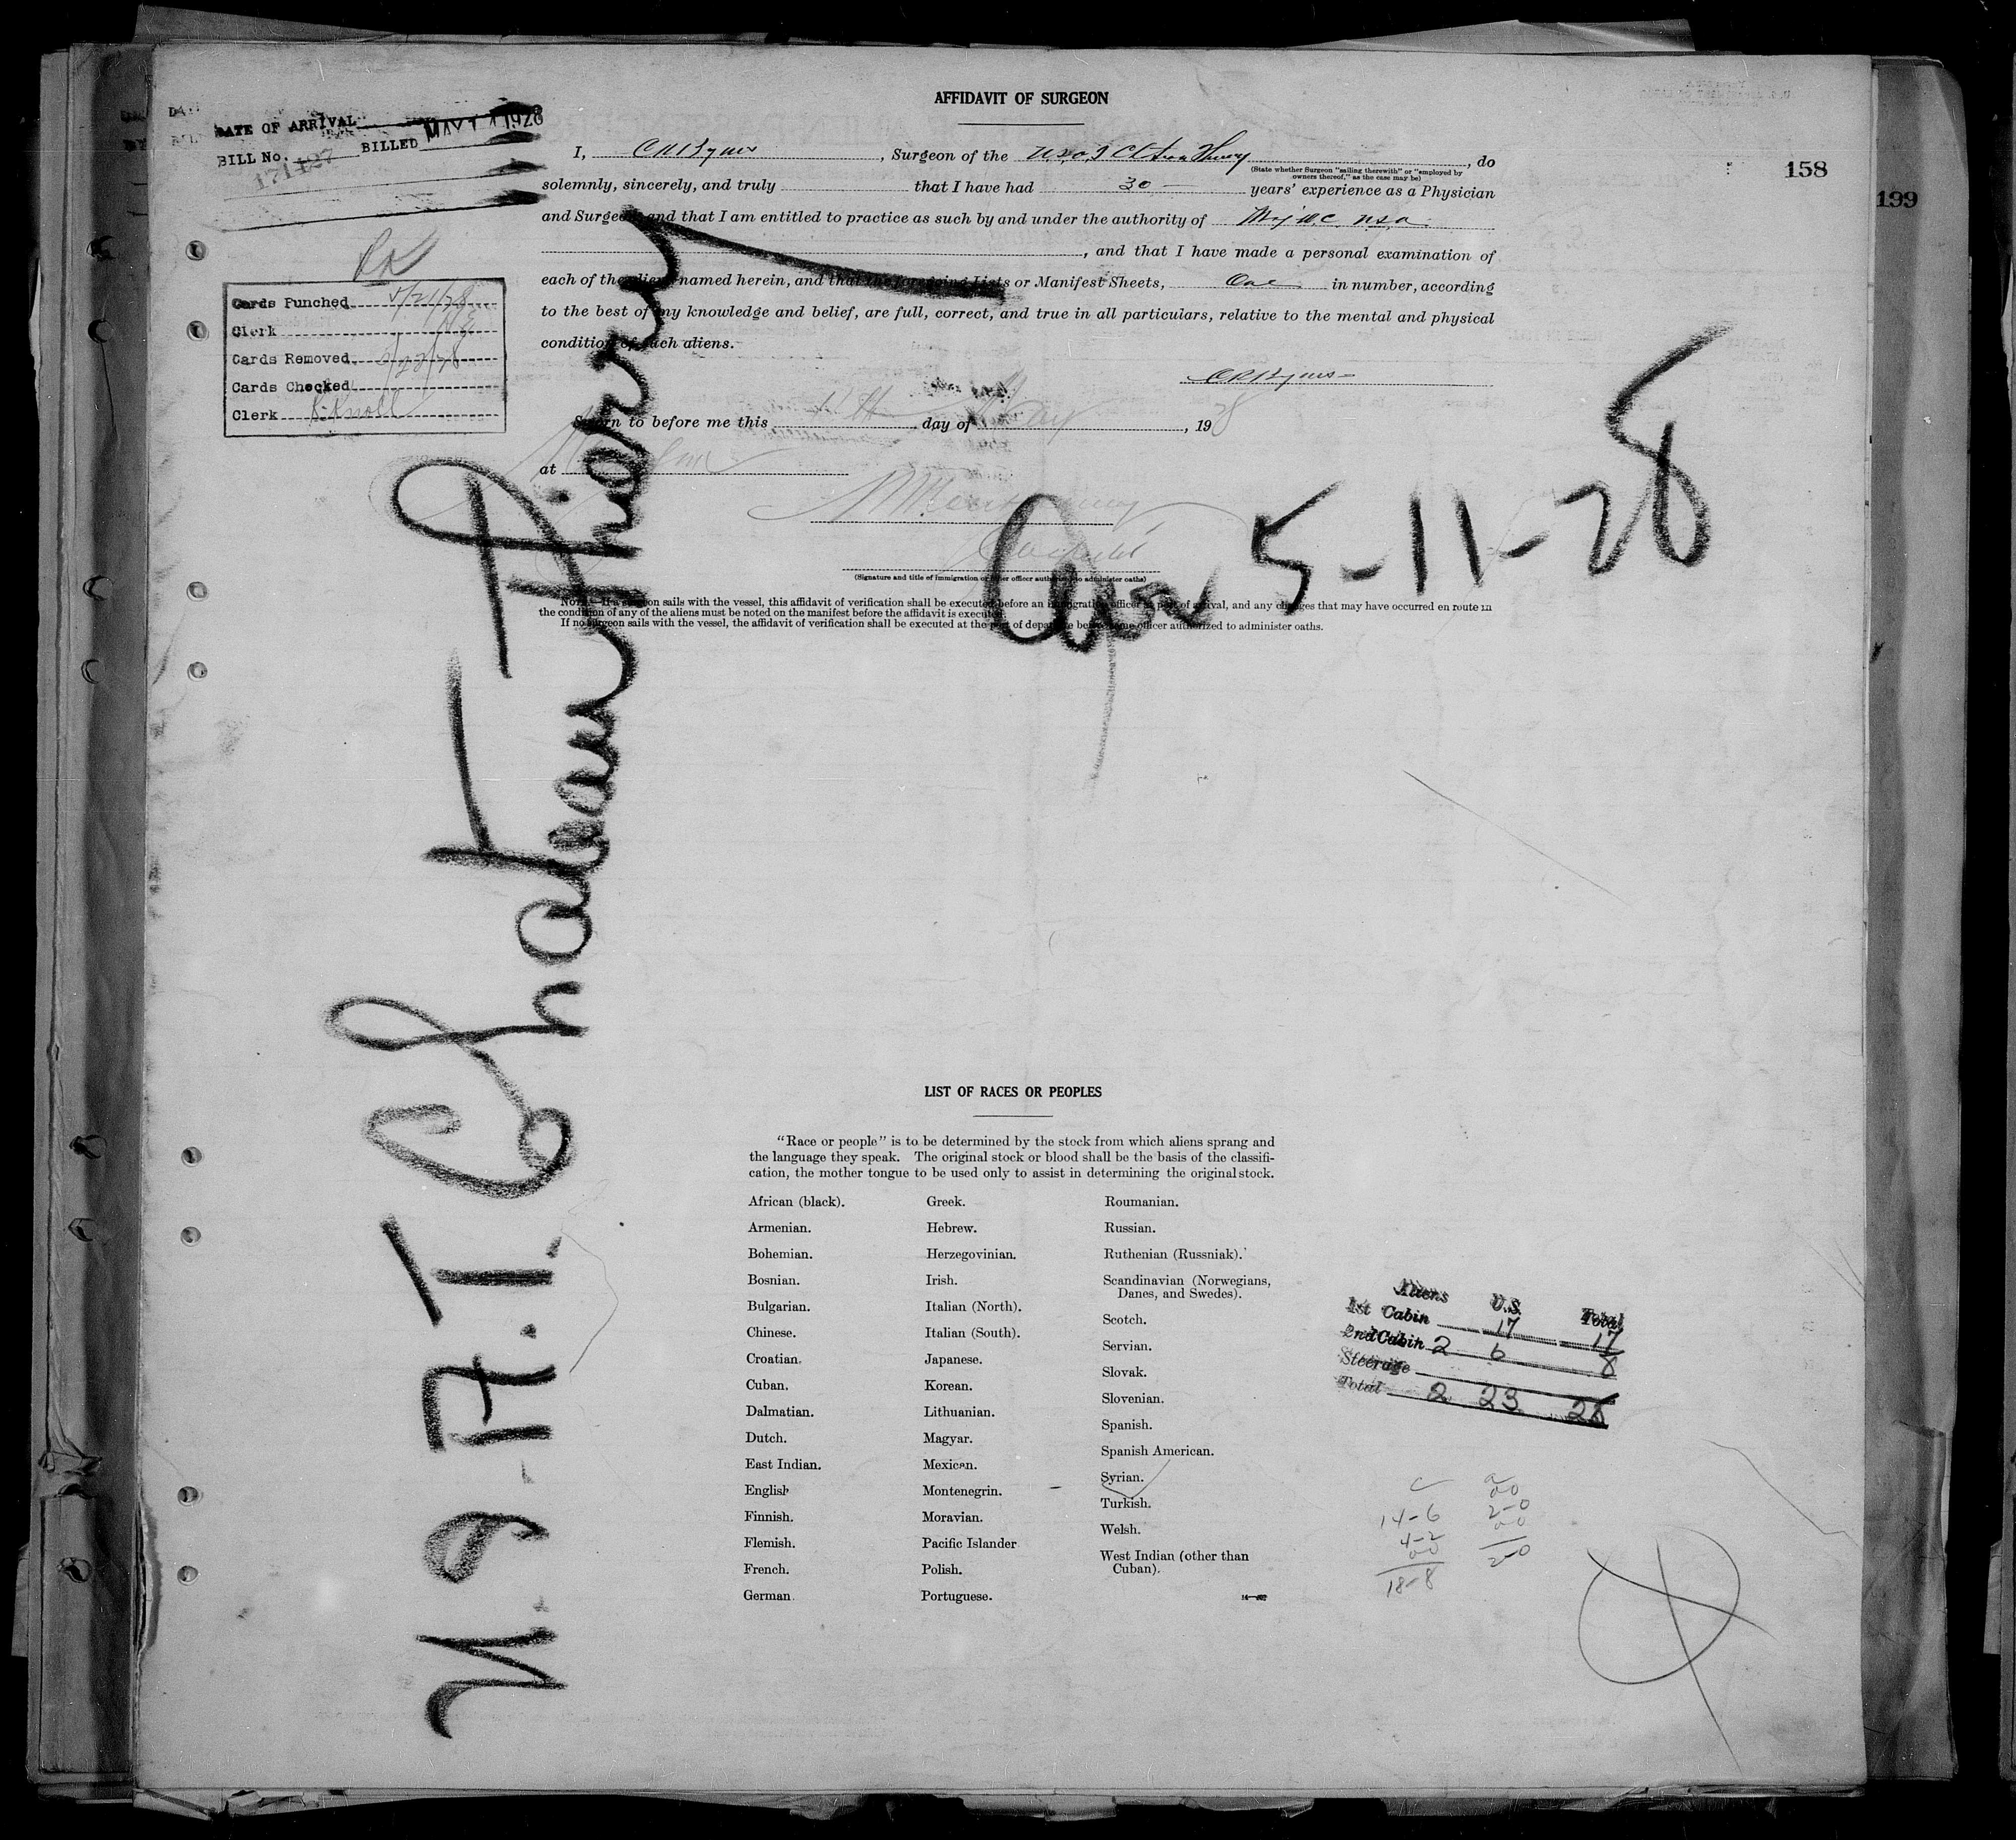 AFFIDAVIT OF SURGEON
DATE OF ARRIVAL
BILL No. BILLED MAY 1928
171427
158
199
I, , Surgeon of the , do
(State whether Surgeon "sailing therewith" or "employed by owners thereof," as the case may be)
solemnly, sincerely, and truly that I have had 30 years' experience as a Physician
and Surgeon and that I am entitled to practice as such by and under the authority of Maj M.C. U.S.A.
, and that I have made a personal examination of
each of the aliens named herein, and that the foregoing Lists or Manifest Sheets, One in number, according
to the best of my knowledge and belief, are full, correct, and true in all particulars, relative to the mental and physical
condition of such aliens.
Cards Punched 5/21/28
Clerk
Cards Removed 5/22/28
Cards Checked
Clerk Knoll
Sworn to before me this 11th day of May, 1928
at
(Signature and title of immigration or other officer authorized to administer oaths)
5-11-28
NOTE.—If a surgeon sails with the vessel, this affidavit of verification shall be executed before an immigration officer at port of arrival, and any changes that may have occurred en route in
the condition of any of the aliens must be noted on the manifest before the affidavit is executed.
If no surgeon sails with the vessel, the affidavit of verification shall be executed at the port of departure before some officer authorized to administer oaths.
U.S.A.T. Chateau Thierry
LIST OF RACES OR PEOPLES
"Race or people" is to be determined by the stock from which aliens sprang and
the language they speak. The original stock or blood shall be the basis of the classifi-
cation, the mother tongue to be used only to assist in determining the original stock.
African (black).
Armenian.
Bohemian.
Bosnian.
Bulgarian.
Chinese.
Croatian.
Cuban.
Dalmatian.
Dutch.
East Indian.
English
Finnish.
Flemish.
French.
German.
Greek.
Hebrew.
Herzegovinian.
Irish.
Italian (North).
Italian (South).
Japanese.
Korean.
Lithuanian.
Magyar.
Mexican.
Montenegrin.
Moravian.
Pacific Islander
Polish.
Portuguese.
Roumanian.
Russian.
Ruthenian (Russniak).
Scandinavian (Norwegians,
Danes, and Swedes).
Scotch.
Servian.
Slovak.
Slovenian.
Spanish.
Spanish American.
Syrian.
Turkish.
Welsh.
West Indian (other than
Cuban).
Aliens U.S. Total
1st Cabin 17 17
2nd Cabin 2 6 8
Steerage
Total 2 23 25
c a
00
14-6 2-0
4-2 00
00 2-0
18-8